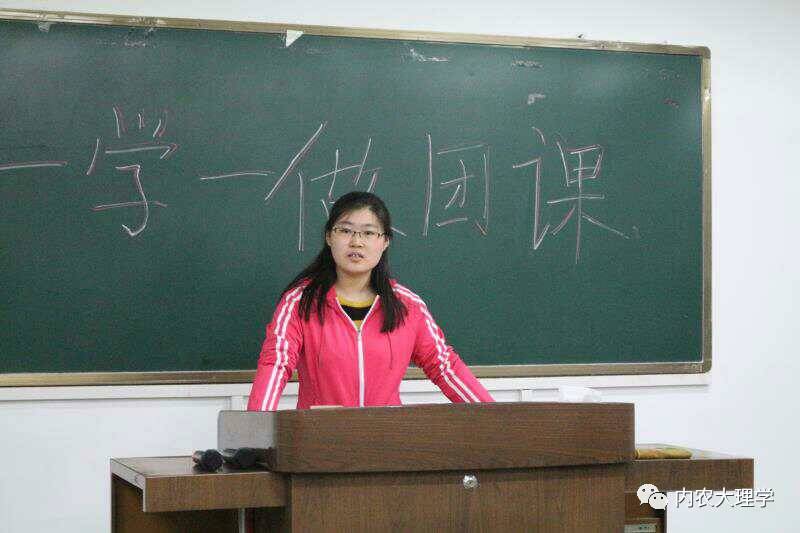 一学一做团课
内农大理学